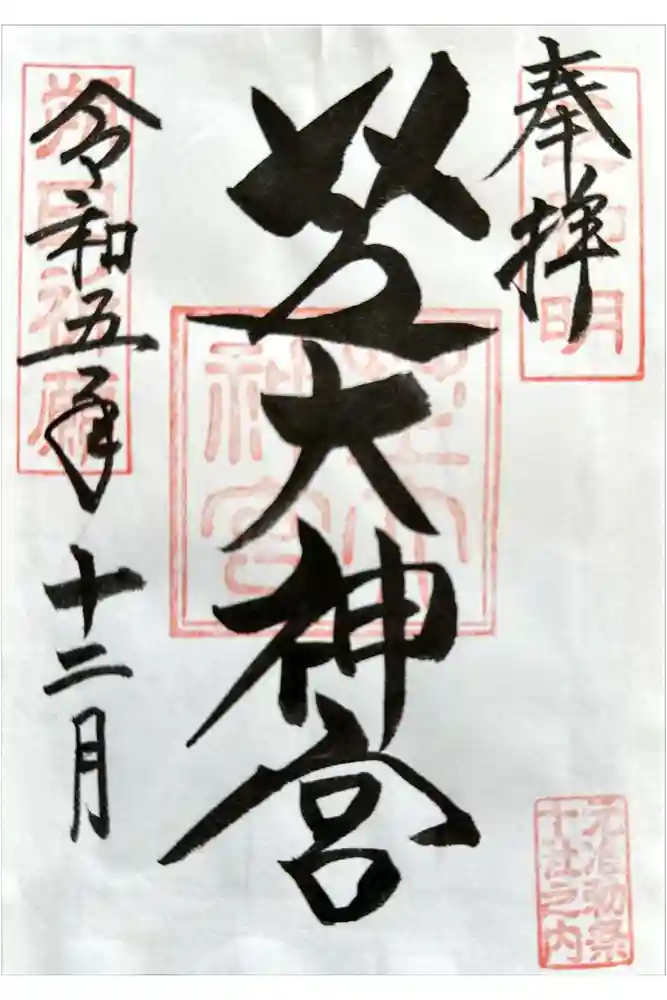 奉拝
明
芝大神宮
芝大
神宮
令和五年十二月
朔日祈願
元准勅祭
十社之内